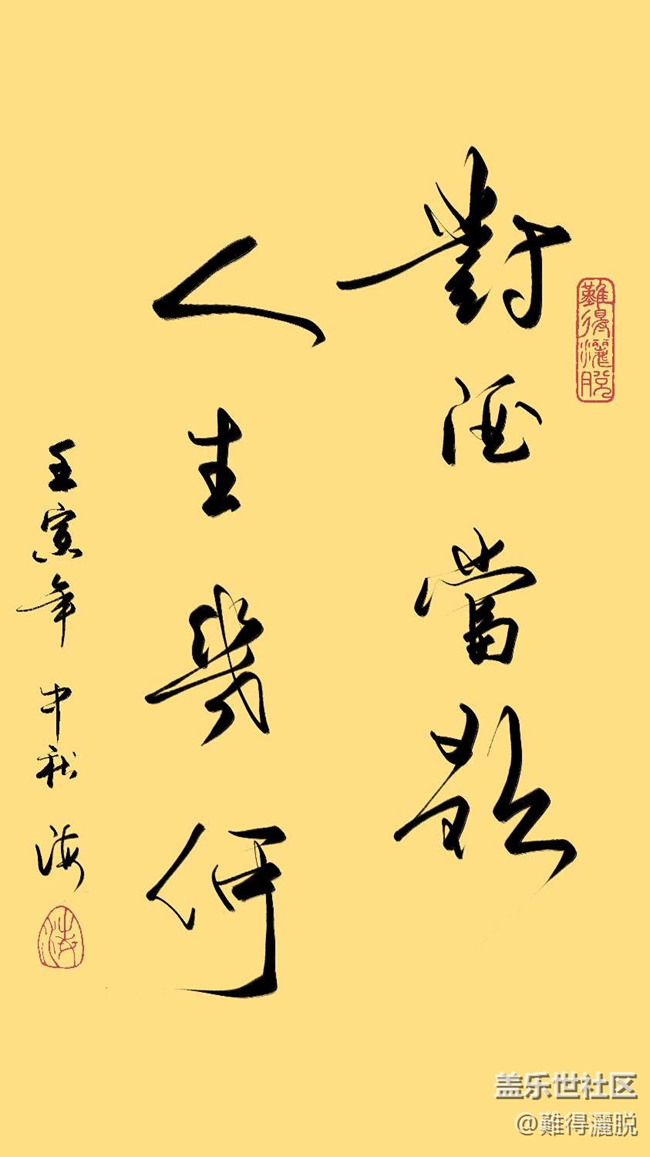 對酒當歌
人生幾何
壬寅年 中秋 海
難得灑脱
海
盖乐世社区
@難得灑脱